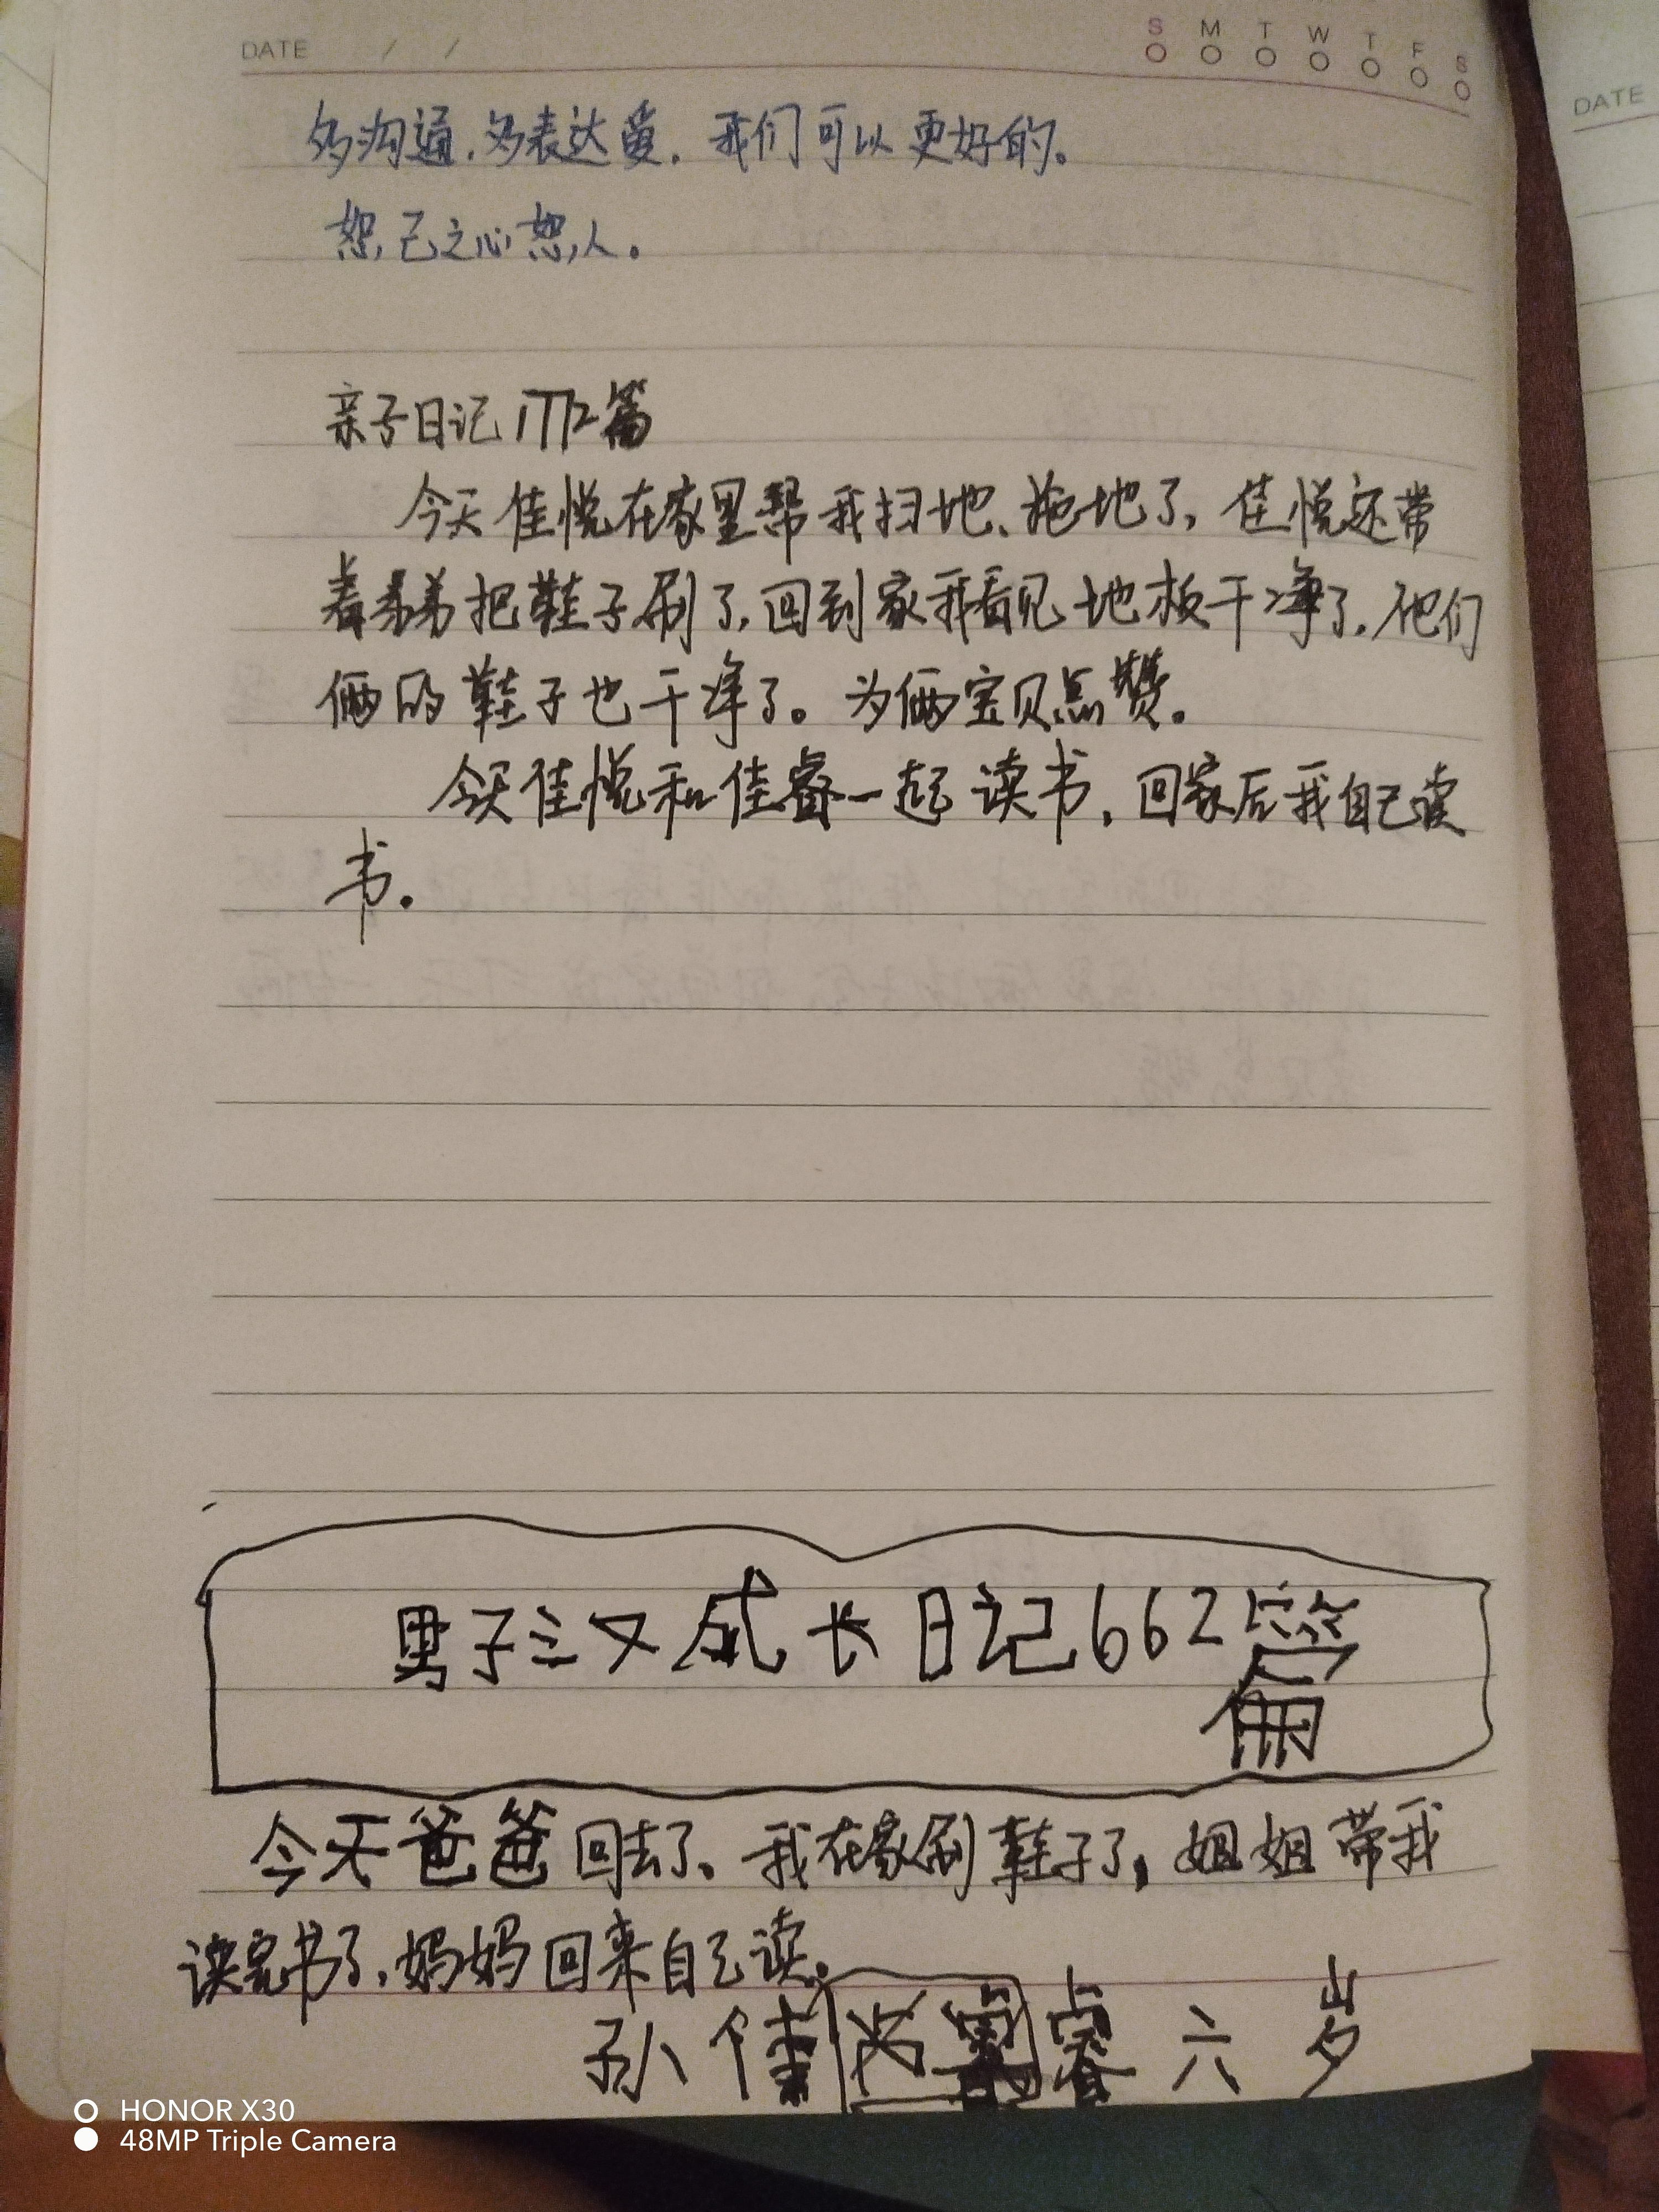 DATE / /
S M T W T F S
DATE
多沟通.多表达爱.我们可以更好的。
恕己之心恕人。
亲子日记1772篇
今天佳悦在家里帮我扫地、拖地了,佳悦还带
着弟弟把鞋子刷了,回到家我看见地板干净了.他们
俩的鞋子也干净了。为俩宝贝点赞。
今天佳悦和佳睿一起读书,回家后我自己读
书.
男子汉成长日记662篇
今天爸爸回去了、我在家刷鞋子了,姐姐带我
读完书了,妈妈回来自己读。
孙佳睿六岁
HONOR X30
48MP Triple Camera